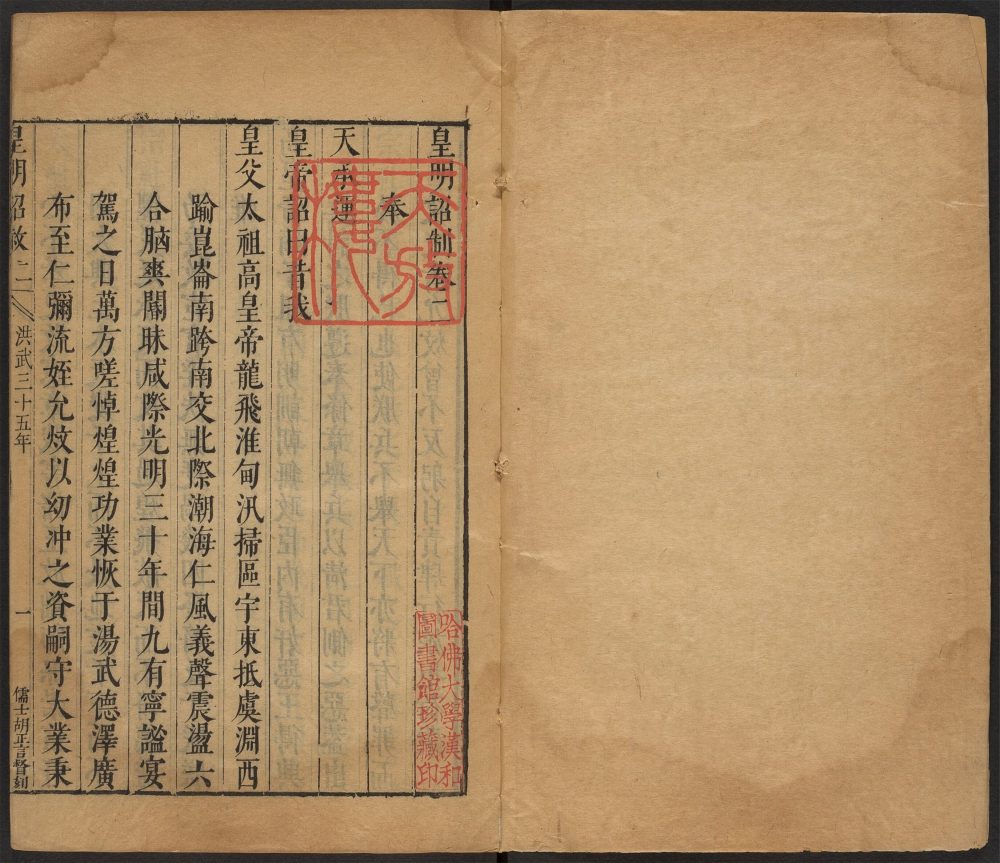 皇明詔制卷二
奉
天承運
皇帝詔曰昔我
皇父太祖高皇帝龍飛淮甸汛掃區宇東抵虞淵西
踰崑崙南跨南交北際潮海仁風義聲震盪六
合脑爽闇昧咸際光明三十年間九有寧謐宴
駕之日萬方嗟悼煌煌功業恢于湯武德澤廣
布至仁彌流姪允炆以幼冲之資嗣守大業秉
皇明詔敕二 洪武三十五年 一 儒士胡正言督刻
哈佛大學漢和
圖書館珍藏印